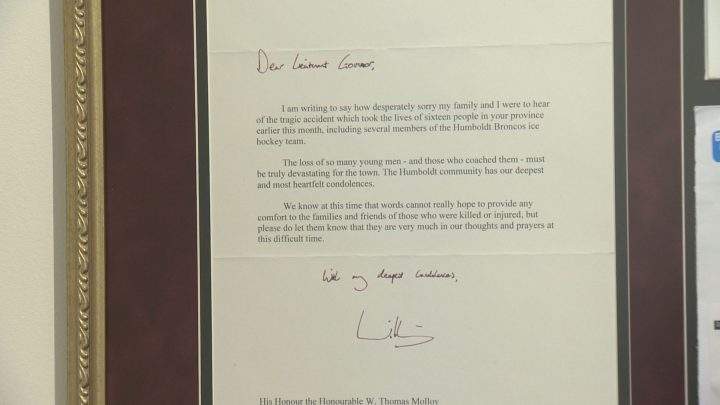 Dear Lieutenant Governor,
I am writing to say how desperately sorry my family and I were to hear
of the tragic accident which took the lives of sixteen people in your province
earlier this month, including several members of the Humboldt Broncos ice
hockey team.
The loss of so many young men - and those who coached them - must
be truly devastating for the town. The Humboldt community has our deepest
and most heartfelt condolences.
We know at this time that words cannot really hope to provide any
comfort to the families and friends of those who were killed or injured, but
please do let them know that they are very much in our thoughts and prayers at
this difficult time.
With my deepest Condolences,
His Honour the Honourable W. Thomas Molloy